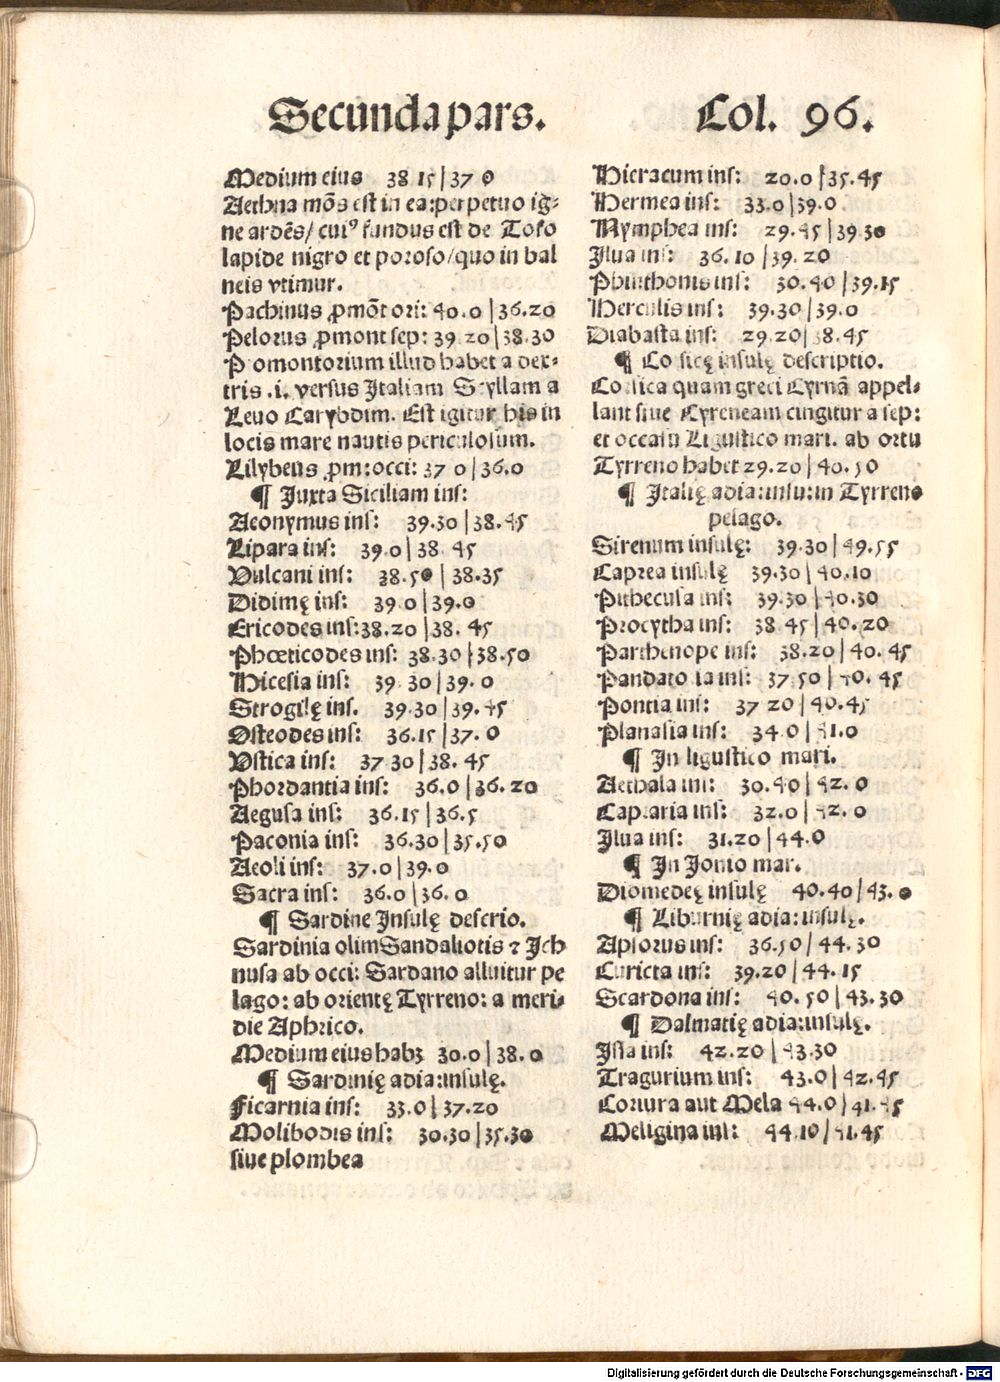 Secunda pars. Col. 96.
Medium eius 38 15|37 0
Aethna mōs est in ea: perpetuo ig-
ne ardēs/ cuiꝰ fundus est de Tofo
lapide nigro et poroso/ quo in bal
neis vtimur.
Pachinus ꝓmōt ori: 40.0|36.20
Pelorus ꝓmont sep: 39 20|38.30
Pomontorium illud habet a dex-
tris .i. versus Italiam Scyllam a
Leuo Carybdim. Est igitur his in
locis mare nautis periculosum.
Lilybeus ꝓm: occi: 37 0|36.0
¶ Juxta Siciliam ins:
Aeonymus ins: 39.30|38.45
Lipara ins: 39.0|38 45
Vulcani ins: 38.50|38.35
Didimę ins: 39 0|39.0
Ericodes ins: 38.20|38.45
Phœticodes ins: 38.30|38.50
Hicesia ins: 39 30|39.0
Strogilę ins. 39.30|39.45
Osteodes ins: 36.15|37.0
Vstica ins: 37 30|38.45
Phordantia ins: 36.0|36.20
Aegusa ins: 36.15|36.5
Paconia ins: 36.30|35.50
Aeoli ins: 37.0|39.0
Sacra ins: 36.0|36.0
¶ Sardine Insulę descrio.
Sardinia olim Sandaliotis ⁊ Ich
nusa ab occi: Sardano alluitur pe
lago: ab orientę Tyrreno: a meri-
die Aphrico.
Medium eius habꝫ 30.0|38.0
¶ Sardinię adia: insulę.
Ficarnia ins: 33.0|37.20
Molibodis ins: 30.30|35.30
siue plombea
Hieracum ins: 20.0|35.45
Hermea ins: 33.0|39.0
Nymphea ins: 29.45|39 30
Ilua ins: 36.10|39.20
Phinthonis ins: 30.40|39.15
Herculis ins: 39.30|39.0
Diabasta ins: 29.20|38.45
¶ Corsicę insulę descriptio.
Corsica quam greci Cyrnā appel-
lant siue Cyreneam cingitur a sep:
et occasu Ligustico mari. ab ortu
Tyrreno habet 29.20|40.50
¶ Italię adia: insu: in Tyrreno
pelago.
Sirenum insulę: 39.30|49.55
Caprea insulę 39.30|40.10
Pithecusa ins: 39.30|40.30
Procytha ins: 38 45|40.20
Parthenope ins: 38.20|40.45
Pandato ia ins: 37.50|40.45
Pontia ins: 37 20|40.45
Planasia ins: 34 0|41.0
¶ In ligustico mari.
Aethala ins: 30.40|42.0
Capraria ins: 32.0|42.0
Ilua ins: 31.20|44.0
¶ In Jonio mar.
Diomedeę insulę 40.40|43.0
¶ Liburnię adia: insulę.
Apsorus ins: 36.50/44.30
Curicta ins: 39.20|44.15
Scardona ins: 40.50|43.30
¶ Dalmatię adia: insulę.
Issa ins: 42.20|43.30
Tragurium ins: 43.0|42.45
Corcura aut Mela 44.0|41.45
Meligina ins: 44.10|41.45
Digitalisierung gefördert durch die Deutsche Forschungsgemeinschaft - DFG